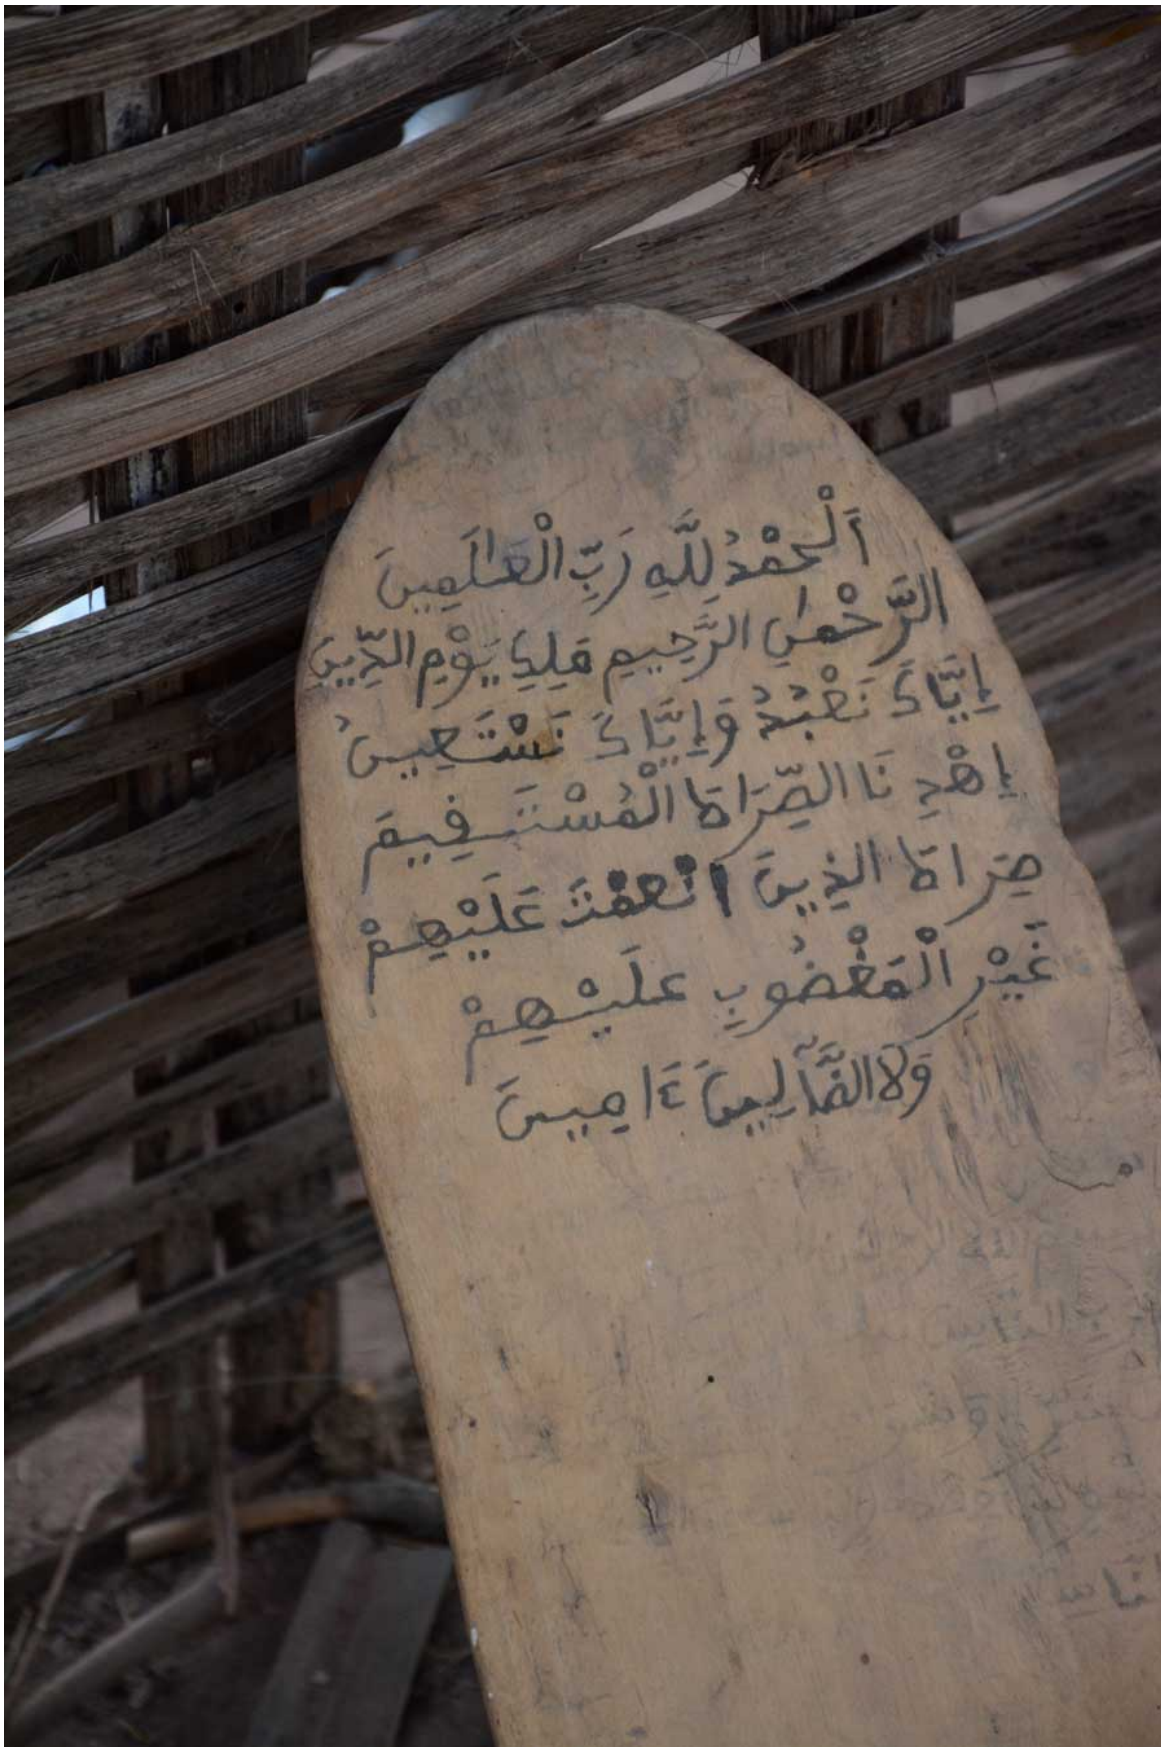 اَلْحَمْدُ لِلَّهِ رَبِّ الْعَٰلَمِينَ
الرَّحْمَٰنِ الرَّحِيمِ مَلِكِ يَوْمِ الدِّينِ
إِيَّاكَ نَعْبُدُ وَإِيَّاكَ نَسْتَعِينُ
إِهْدِنَا الصِّرَاطَ الْمُسْتَفِيمَ
صِرَاطَ الذِينَ انْعَمْتَ عَلَيْهِمْ
غَيْرِ الْمَغْضُوبِ عَلَيْهِمْ
وَلَا الضَّآلِّينَ ءَامِينَ